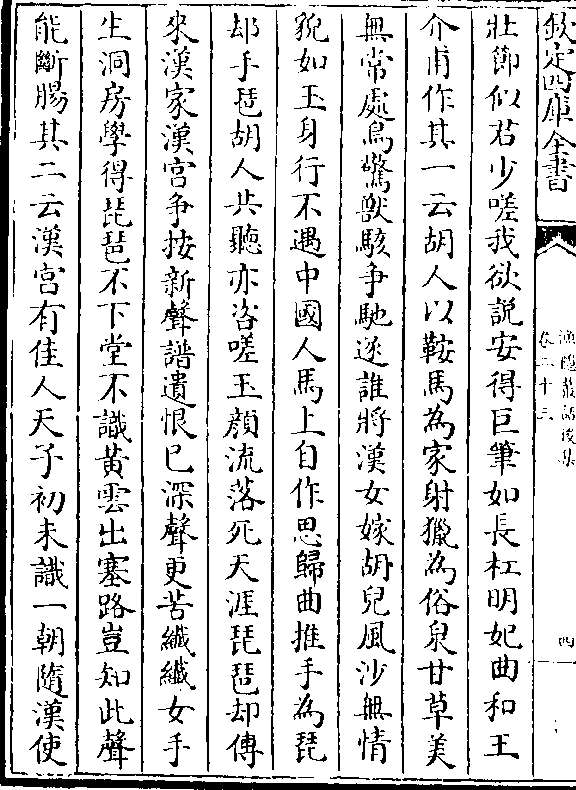 欽定四庫全書
漁隱叢話後集
卷二十三
四
壯節似君少嗟我欲説安得巨筆如長杠明妃曲和王
介甫作其一云胡人以鞍馬為家射獵為俗泉甘草美
無常處鳥驚獸駭爭馳逐誰將漢女嫁胡兒風沙無情
貌如玉身行不遇中國人馬上自作思歸曲推手為琵
却手琶胡人共聽亦咨嗟玉顔流落死天涯琵琶却傳
來漢家漢宫争按新聲譜遺恨已深聲更苦纎纎女手
生洞房學得琵琶不下堂不識黄雲出塞路豈知此聲
能斷腸其二云漢宫有佳人天子初未識一朝隨漢使